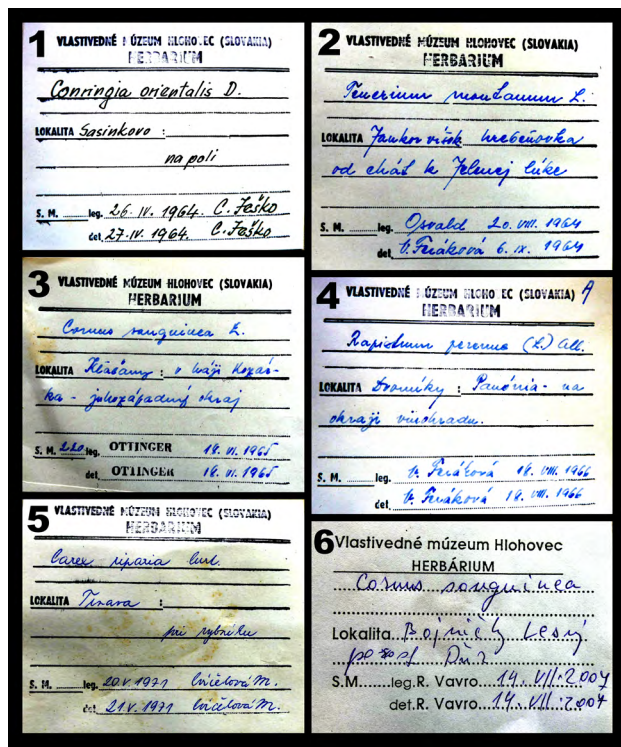 1
VLASTIVEDNÉ MÚZEUM HLOHOVEC (SLOVAKIA)
HERBARIUM
Conringia orientalis D.
LOKALITA Sasinkovo :
na poli
S. M. leg. 26. IV. 1964. C. Ješko
det. 27. IV. 1964. C. Ješko
2
VLASTIVEDNÉ MÚZEUM HLOHOVEC (SLOVAKIA)
HERBARIUM
Teucrium montanum L.
LOKALITA Jankov vŕšok hrebeňovka
od chát k Jelenej lúke
S. M. leg. Osvald 20. VIII. 1964
det. V. Feráková 6. IX. 1964
3
VLASTIVEDNÉ MÚZEUM HLOHOVEC (SLOVAKIA)
HERBARIUM
Cornus sanguinea L.
LOKALITA Kľačany : v háji
- juhozápadný okraj
S. M. 220 leg. OTTINGER 18. VI. 1965
det. OTTINGER 18. VI. 1965
4
VLASTIVEDNÉ MÚZEUM HLOHOVEC (SLOVAKIA) A
HERBARIUM
Rapistrum perenne (L.) All.
LOKALITA Dvorníky : Panónia - na
okraji vinohradu.
S. M. leg. V. Feráková 18. VIII. 1966
det. V. Feráková 18. VIII. 1966
5
VLASTIVEDNÉ MÚZEUM HLOHOVEC (SLOVAKIA)
HERBARIUM
Carex riparia Curt.
LOKALITA Trnava :
pri rybníku
S. M. leg. 20.V. 1971 M.
det. 21.V. 1971 M.
6
Vlastivedné múzeum Hlohovec
HERBÁRIUM
Cornus sanguinea
Lokalita Bojničky Lesný
porast
S.M. leg. R. Vavro 14. VII. 2007
det. R. Vavro 14. VII. 2007